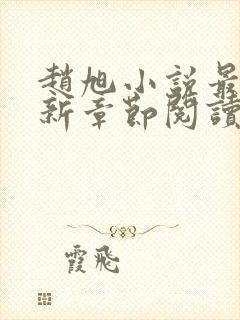 趙旭小說最
新章節閱讀
霞飛